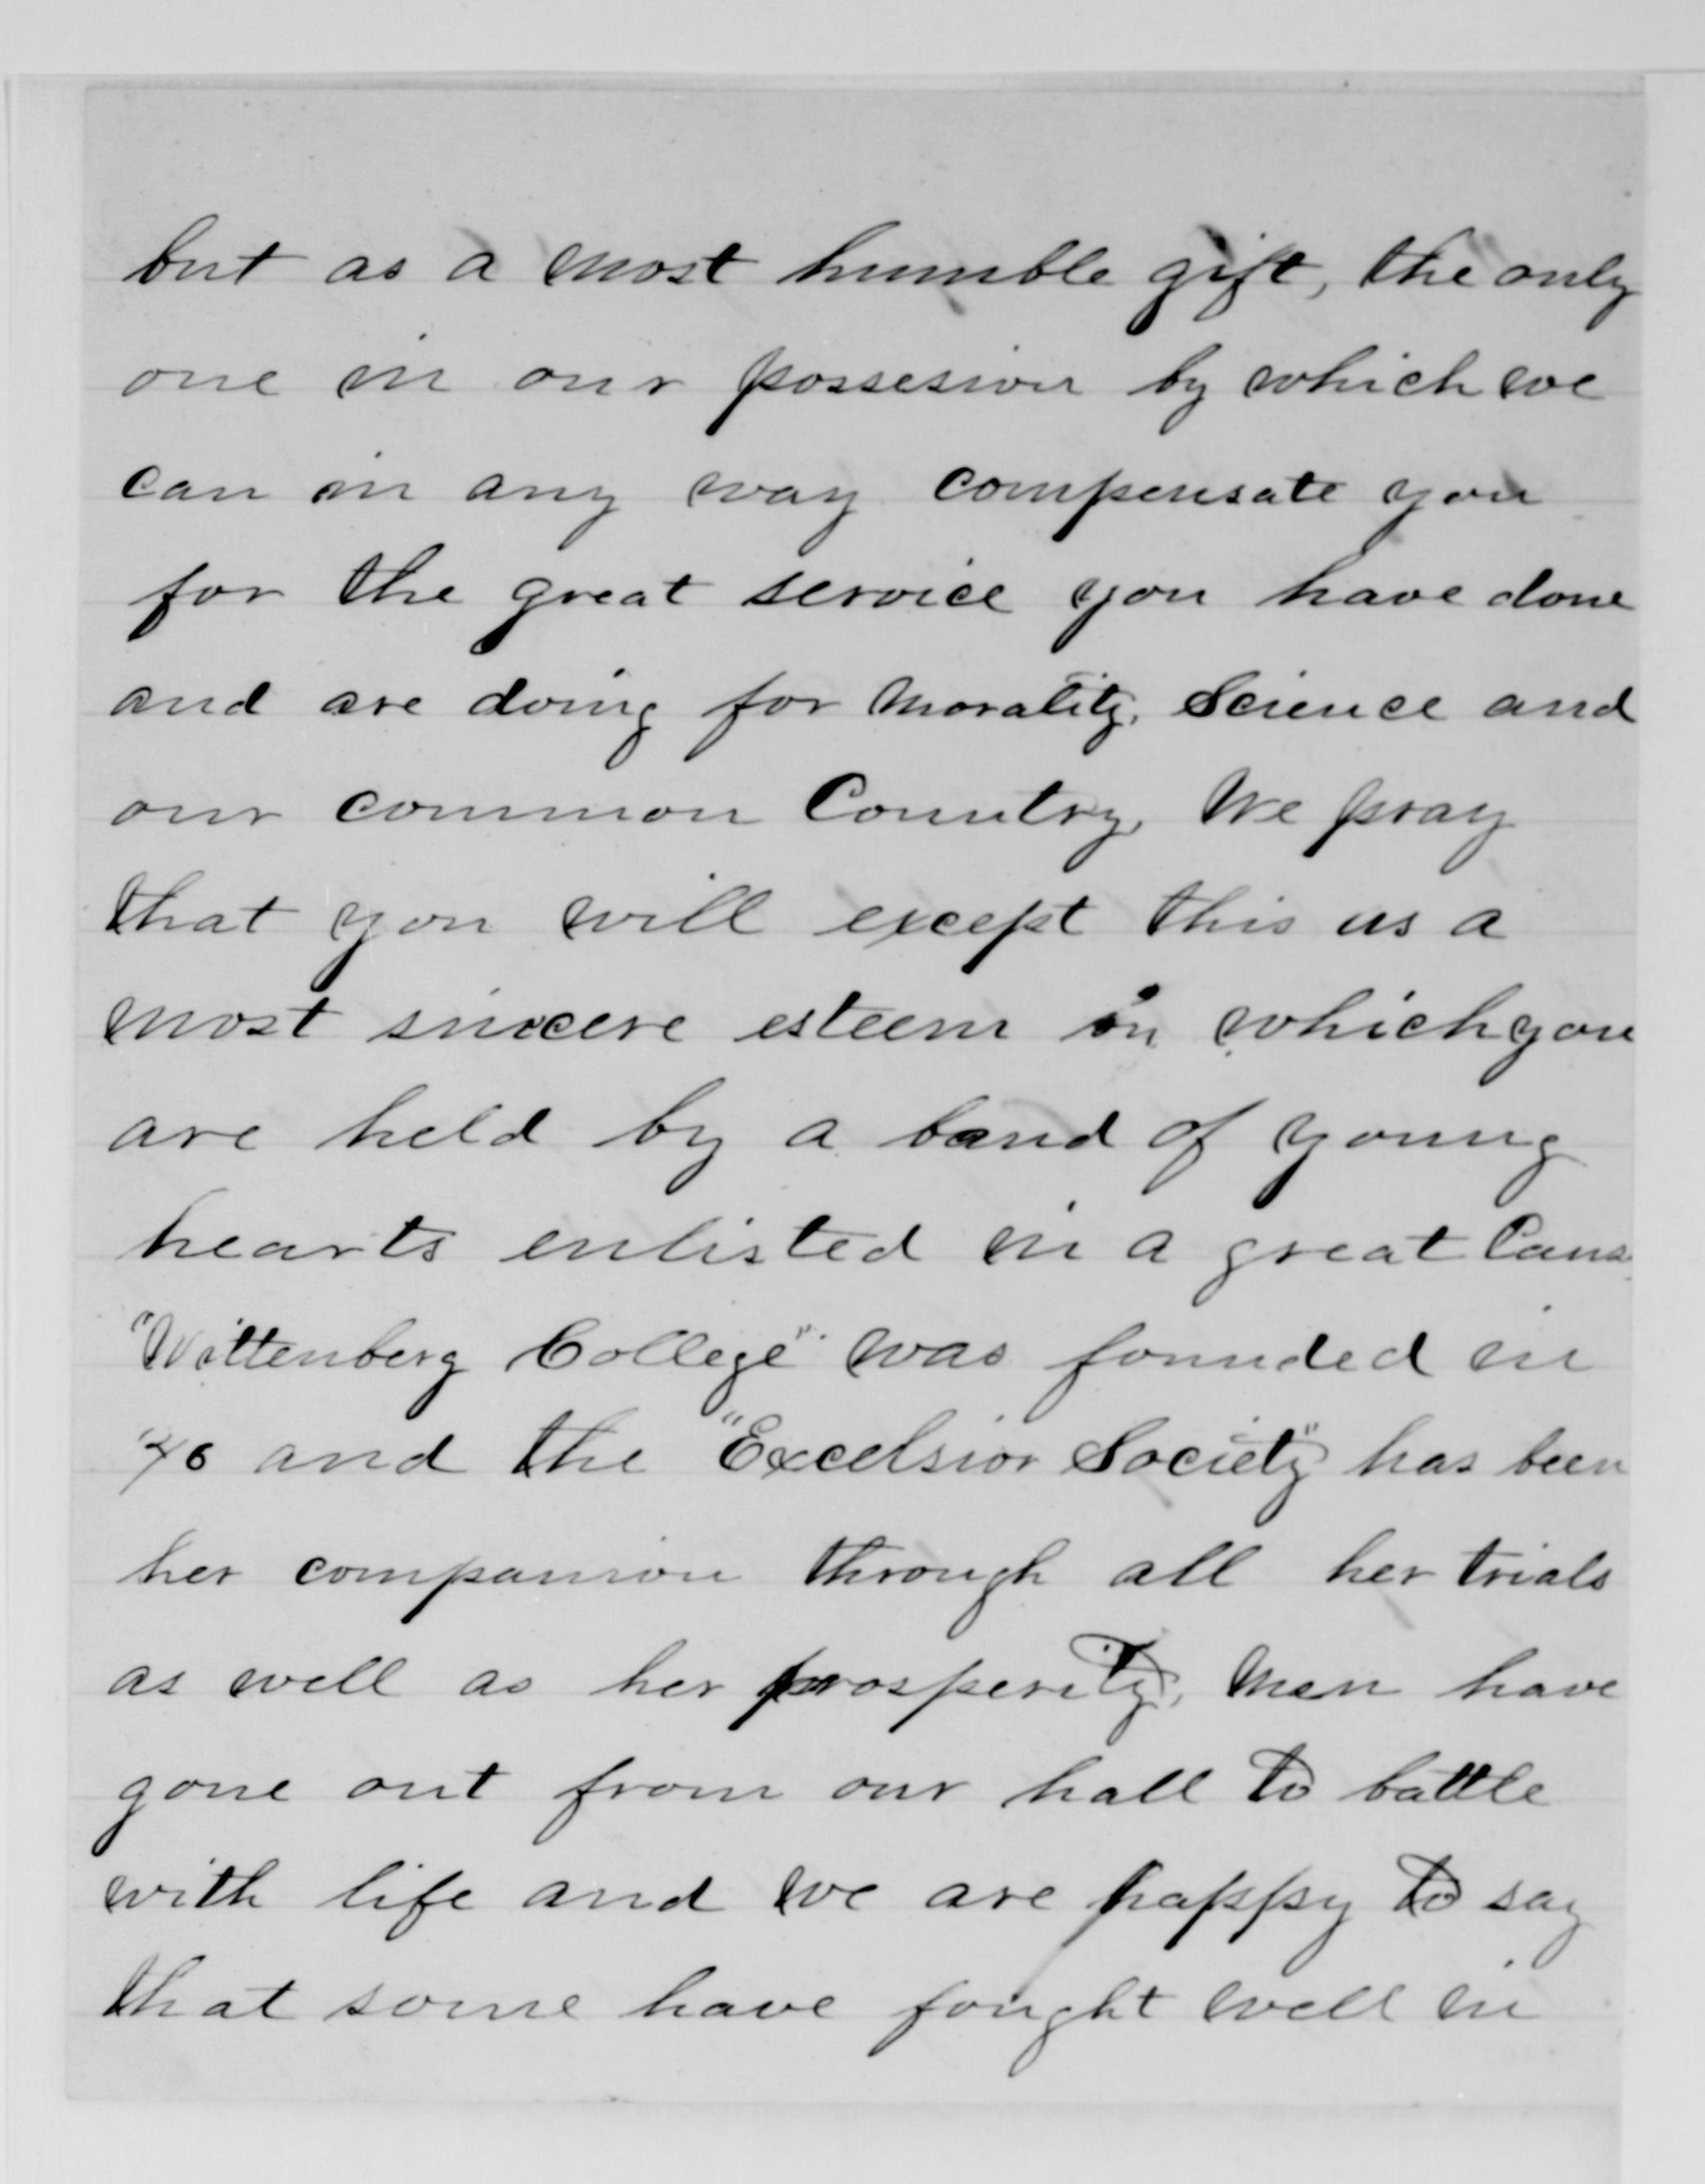 but as a most humble gift, the only
one in our possesion by which we
can in any way compensate you
for the great service you have done
and are doing for Morality, Science and
our common Country, We pray
that you will except this as a
most sincere esteem in which you
are held by a band of young
hearts enlisted in a great Caus
"Wittenberg College" was founded in
'46 and the "Excelsior Society" has been
her companion through all her trials
as well as her prosperity, Men have
gone out from our hall to battle
with life and we are happy to say
that some have fought well in